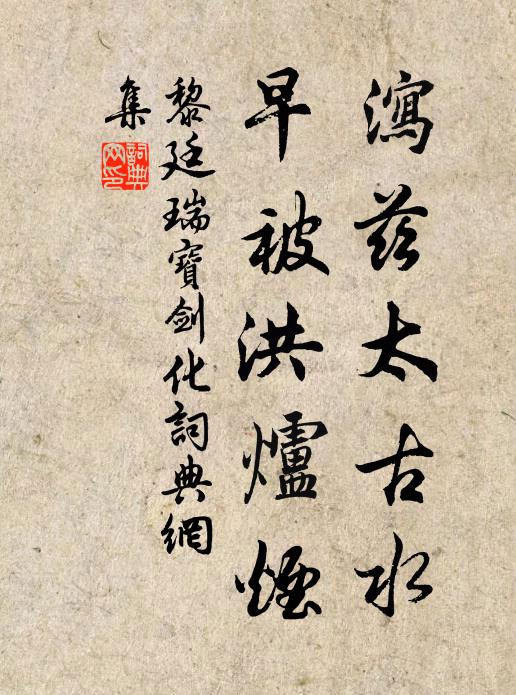 瀉茲太古水
早被洪爐煙
黎廷瑞寶劍化詞典網
集
詞典网印